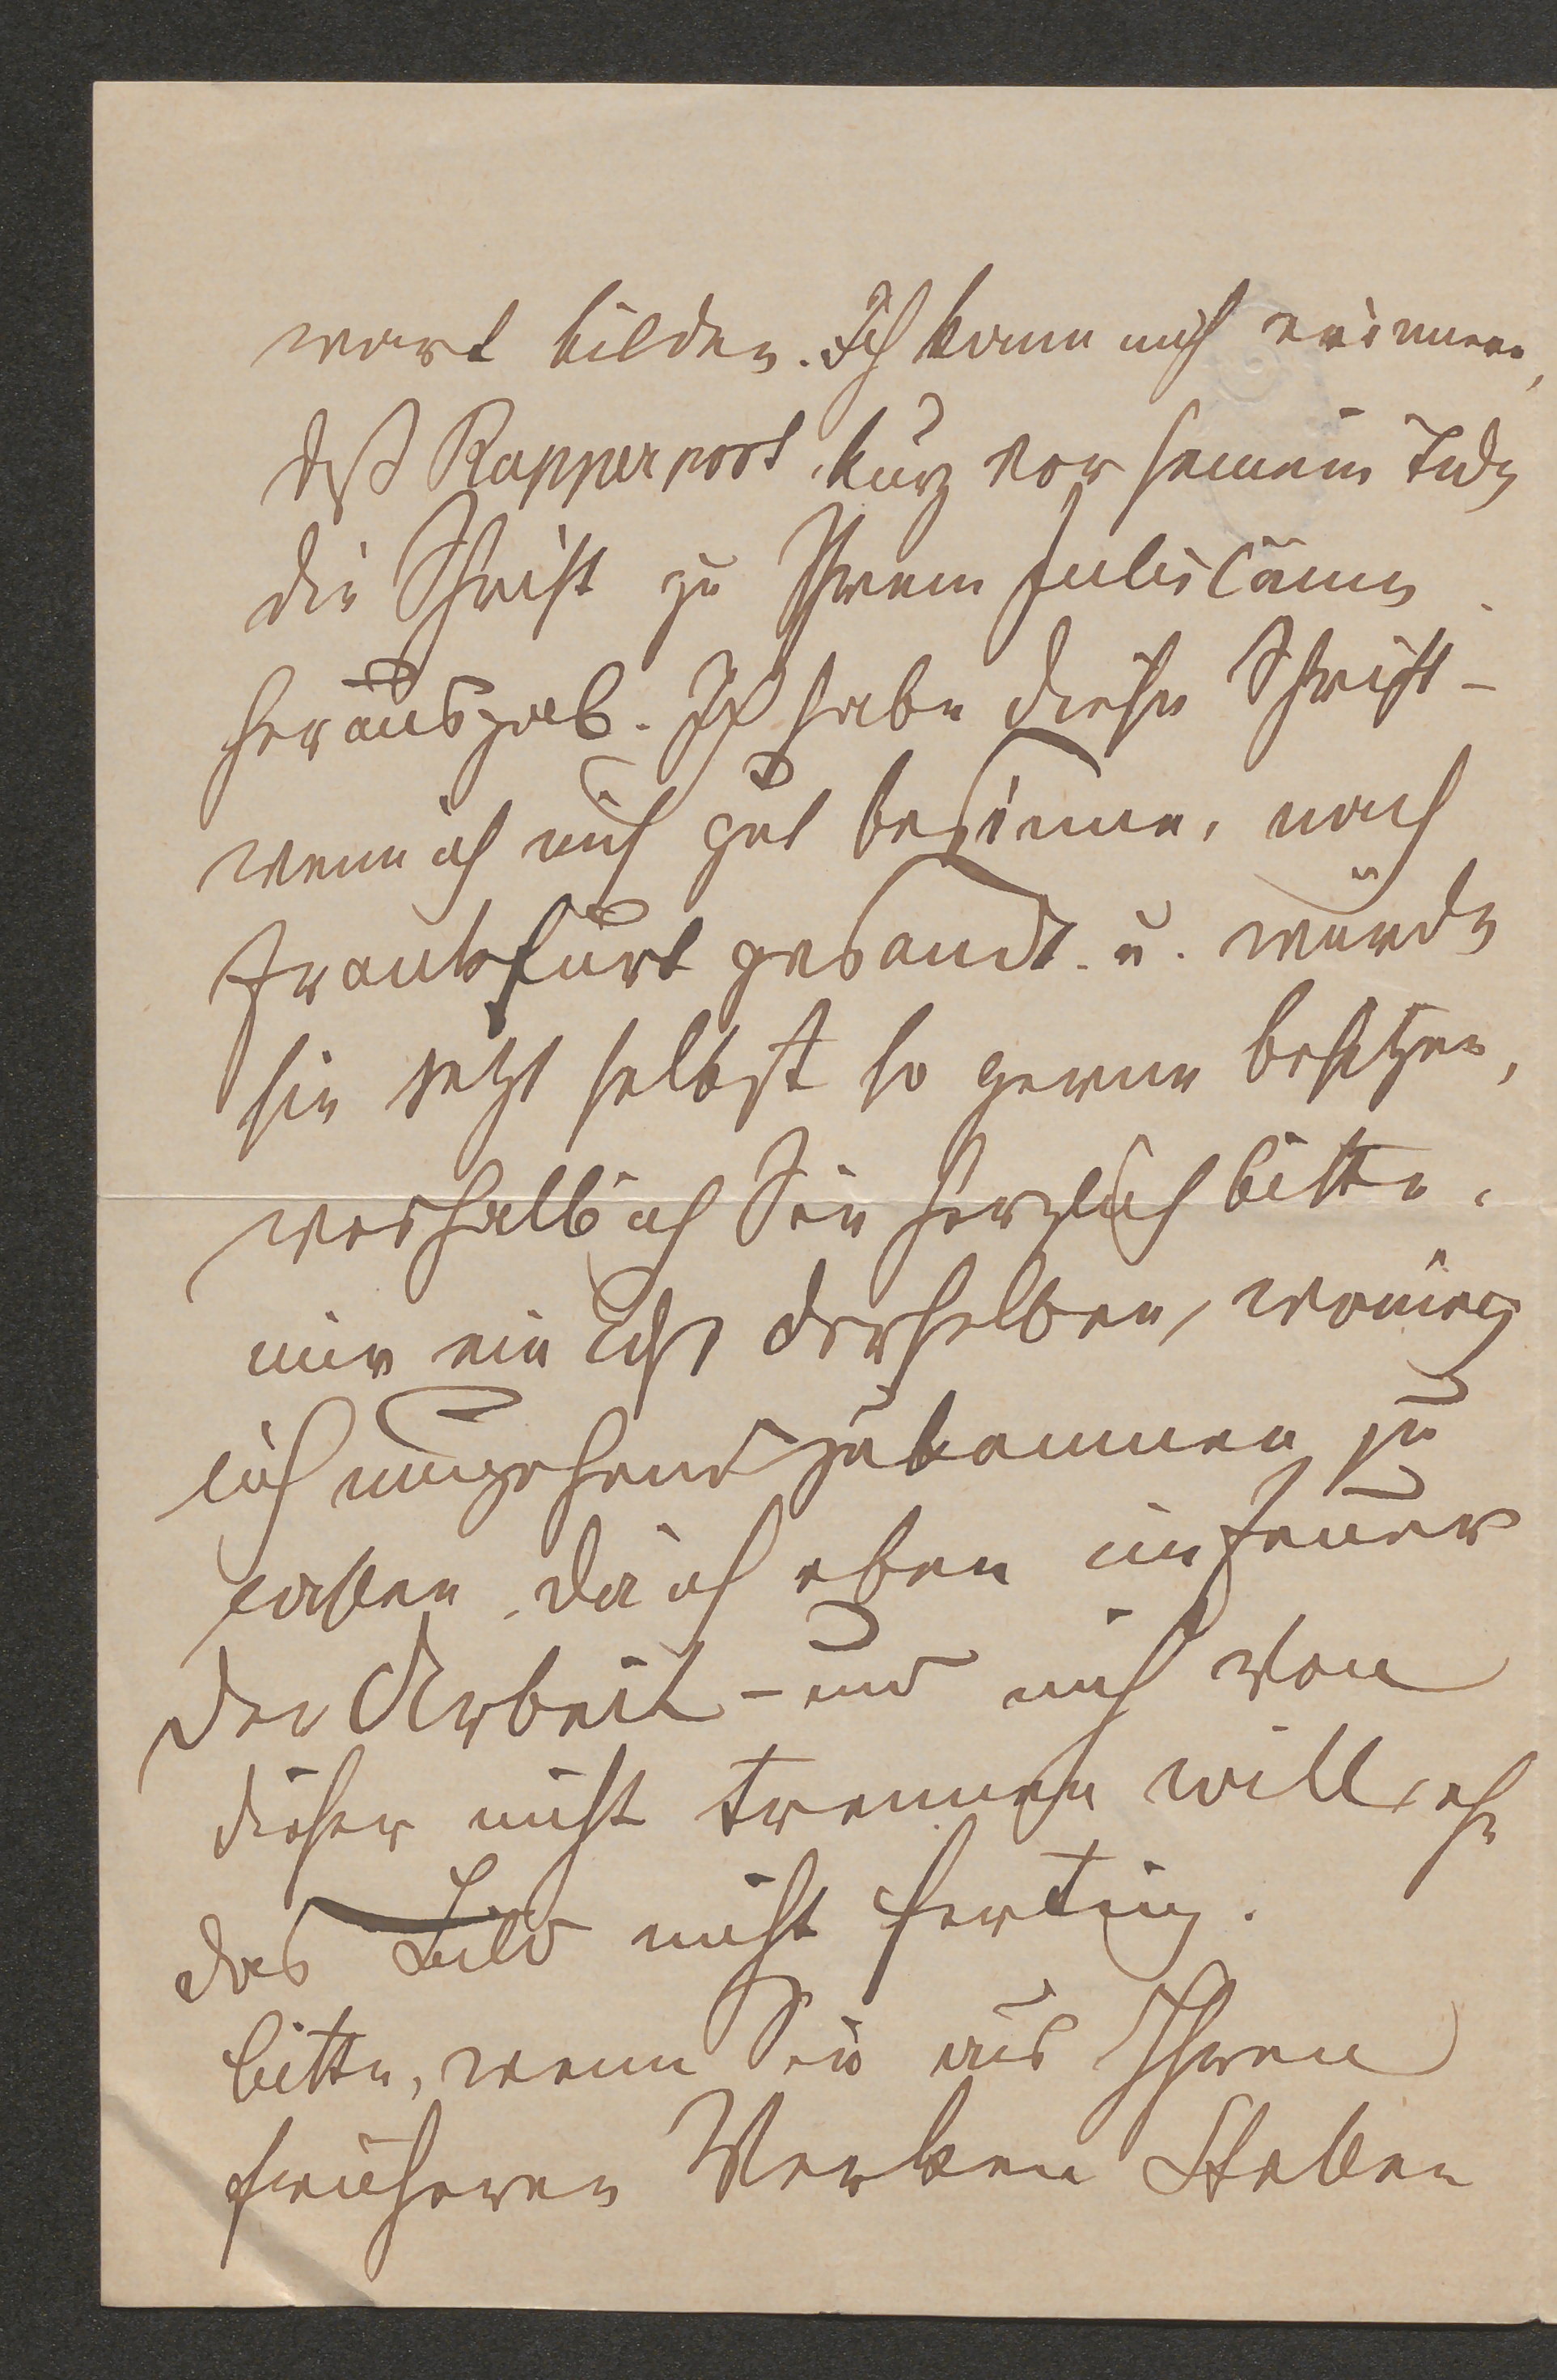 wart bilden. Ich kann mich erinnern,
daß Rapperport kurz vor seinem Tode
die Schrift zu Ihrem Jubiläum
herausgab. Ich habe diese Schrift -
wenn ich mich gut besinne, nach
Frankfurt gesandt u. würde
sie jetzt selbst so gerne besitzen,
weshalb ich Sie herzlich bitte,
mir ein derselben,
lich umgehend zukommen zu
lassen, da ich eben im Feuer
der Arbeit - und mich von
dieser nicht trennen will, ehe
das Bild nicht fertig.
bitte, wenn Sie aus Ihren
früheren Werken Stellen